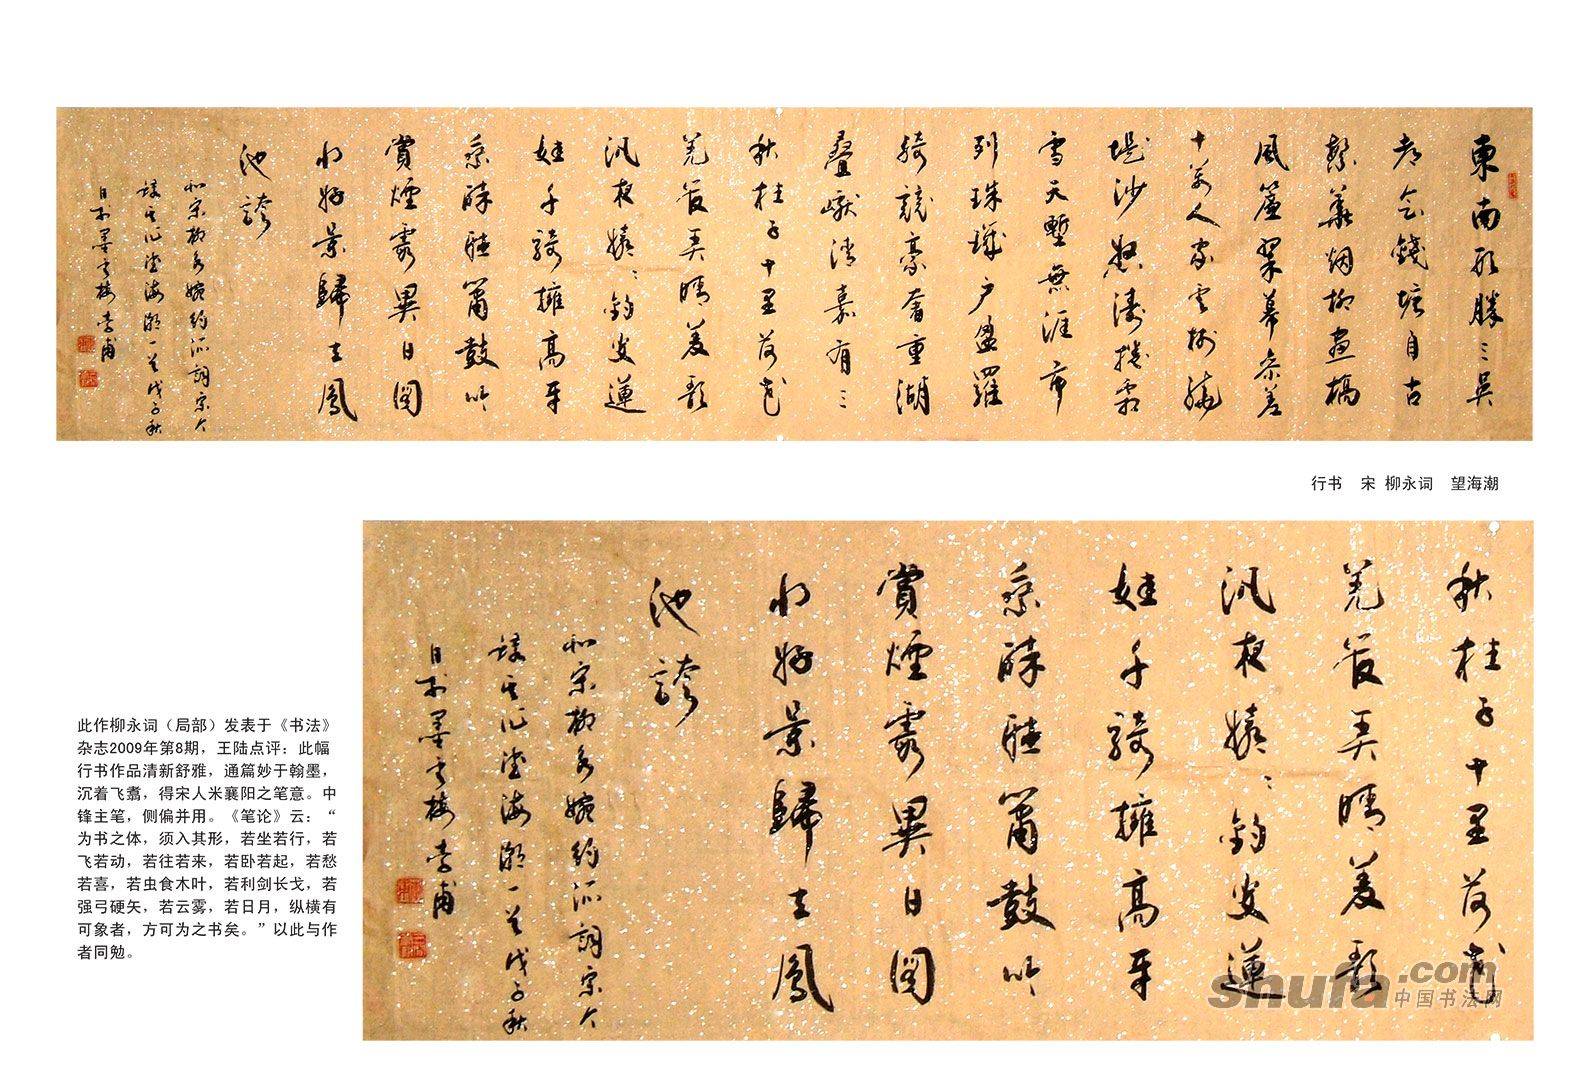 東南形勝三吳
都會錢塘自古
繁華烟柳畫橋
風簾翠幕參差
十萬人家雲樹繞
堤沙怒濤捲霜
雪天塹無涯市
列珠璣户盈羅
綺競豪奢重湖
疊巘清嘉有三
秋桂子十里荷花
羌管弄晴菱歌
汎夜嬉〻釣叟蓮
娃千騎擁高牙
乘醉聽簫鼓吟
賞煙霞異日圖
将好景歸去鳳
池誇
北宋柳永婉約派詞宗今
錄其作望海潮一首戊子秋
日於墨雲樓李甫
行书 宋 柳永词 望海潮
秋桂子十里荷花
羌管弄晴菱歌
汎夜嬉〻釣叟蓮
娃千騎擁高牙
乘醉聽簫鼓吟
賞煙霞異日圖
将好景歸去鳳
池誇
北宋柳永婉約派詞宗今
錄其作望海潮一首戊子秋
日於墨雲樓李甫
此作柳永词（局部）发表于《书法》
杂志2009年第8期，王陆点评：此幅
行书作品清新舒雅，通篇妙于翰墨，
沉着飞翥，得宋人米襄阳之笔意。中
锋主笔，侧偏并用。《笔论》云：“
为书之体，须入其形，若坐若行，若
飞若动，若往若来，若卧若起，若愁
若喜，若虫食木叶，若利剑长戈，若
强弓硬矢，若云雾，若日月，纵横有
可象者，方可为之书矣。”以此与作
者同勉。
shufa.com
中国书法网